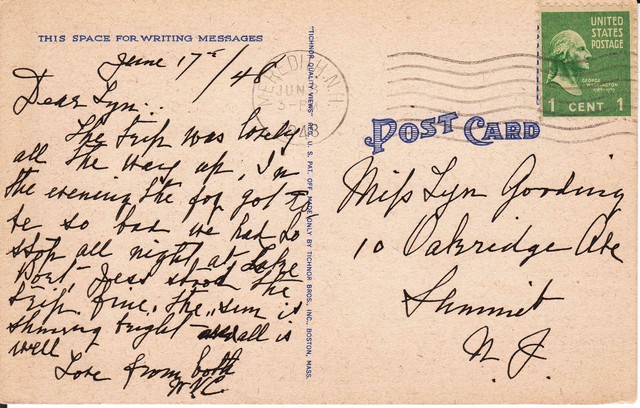 THIS SPACE FOR WRITING MESSAGES
June 17th/48
Dear Lyn..
The trip was lovely
all the way up, In
the evening the fog got to
be so bad we had to
stop all night at Lake
Port, Jess stood the
trip fine. The sun is
shining bright all is
well
Love from both
"TICHNOR QUALITY VIEWS," REG. U. S. PAT. OFF. MADE ONLY BY TICHNOR BROS., INC., BOSTON, MASS.
MEREDITH, N.H.
JUN
3-P
48
UNITED
STATES
POSTAGE
GEORGE
WASHINGTON
1 CENT 1
POST CARD
Miss Lyn Gooding
10 Oakridge Ave
Summit
N. J.